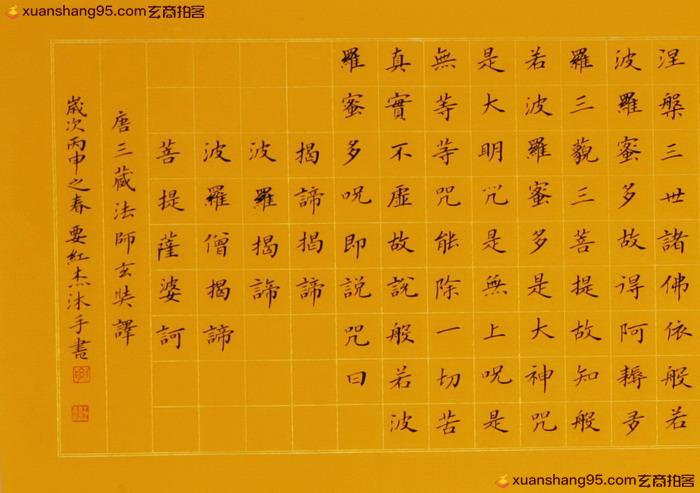 xuanshang95.com玄商拍客
涅槃三世諸佛依般若
波羅蜜多故得阿耨多
羅三藐三菩提故知般
若波羅蜜多是大神咒
是大明咒是無上呪是
無等等咒能除一切苦
真實不虛故說般若波
羅蜜多呪即說咒曰
揭諦揭諦
波羅揭諦
波羅僧揭諦
菩提薩婆訶
唐三藏法師玄奘譯
歲次丙申之春 要紅杰沐手書
xuanshang95.com玄商拍客